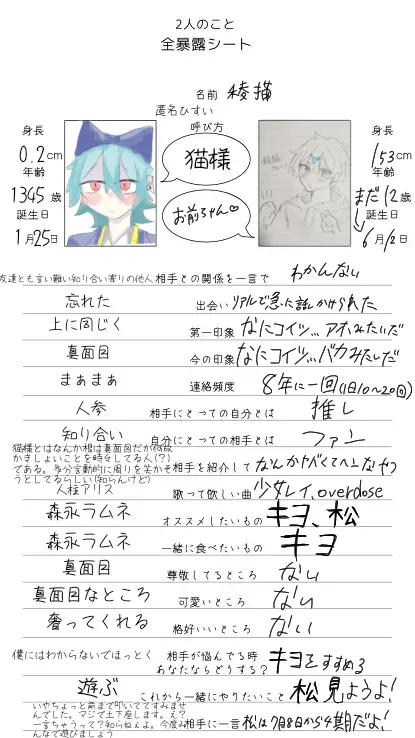 2人のこと
全暴露シート
名前 綾猫
匿名ひすい
身長
0.2cm
年齢
1345歳
誕生日
1月25日
呼び方
猫様
お前ちゃん♡
身長
153cm
年齢
まだ12歳
誕生日
6月12日
友達とも言い難い知り合い寄りの他人 相手との関係を一言で わかんない
忘れた 出会い リアルで急に話しかけられた
上に同じく 第一印象 なにコイツ... アホみたいだ
真面目 今の印象 なにコイツ... バカみたいだ
まぁまぁ 連絡頻度 8年に一回(1日10〜20回)
人参 相手にとっての自分とは 推し
知り合い 自分にとっての相手とは ファン
猫様とはなんか根は真面目だが何故
かきしょいことを時々してる人(?)
である。多分言動的に周りを笑かそ
うとしてるらしい(知らんけど)
相手を紹介して なんかヤバくてヘンなやつ
人柱アリス 歌って欲しい曲 少女レイ、overdose
森永ラムネ オススメしたいもの キヨ、松
森永ラムネ 一緒に食べたいもの キヨ
真面目 尊敬してるところ ない
真面目なところ 可愛いところ ない
奢ってくれる 格好いいところ ない
僕にはわからないでほっとく 相手が悩んでる時
あなたならどうする? キヨをすすめる
遊ぶ これから一緒にやりたいこと 松見ようよ!
いやちょっと前まで叩いててすみませ
んでした。マジで土下座します。え?
一言ちゃうって?知らねぇよ。今度み
んなで遊びましょう
相手に一言 松は7月8日から4期だよ!